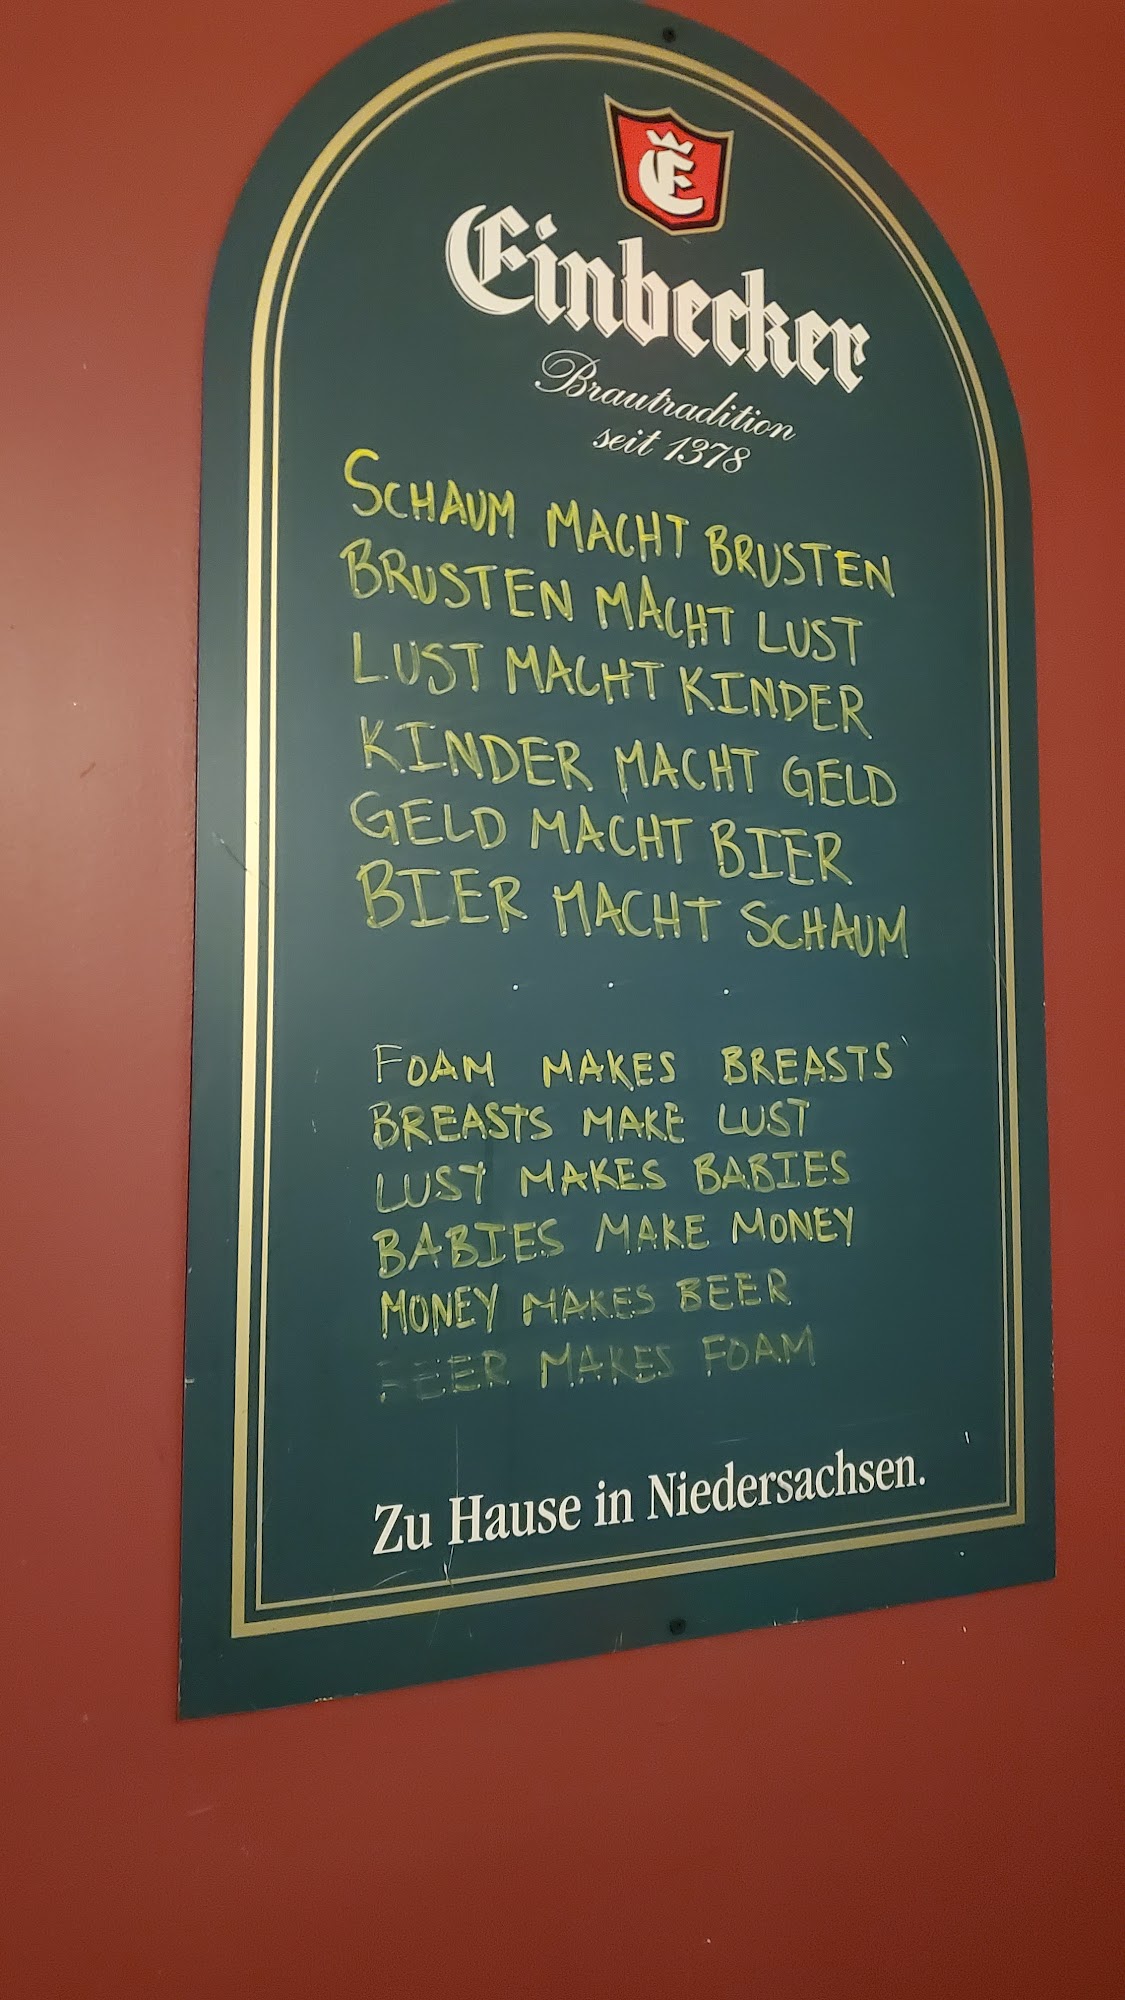 E
Einbecker
Brautradition
seit 1378
SCHAUM MACHT BRUSTEN
BRUSTEN MACHT LUST
LUST MACHT KINDER
KINDER MACHT GELD
GELD MACHT BIER
BIER MACHT SCHAUM
. . .
FOAM MAKES BREASTS
BREASTS MAKE LUST
LUST MAKES BABIES
BABIES MAKE MONEY
MONEY MAKES BEER
BEER MAKES FOAM
Zu Hause in Niedersachsen.